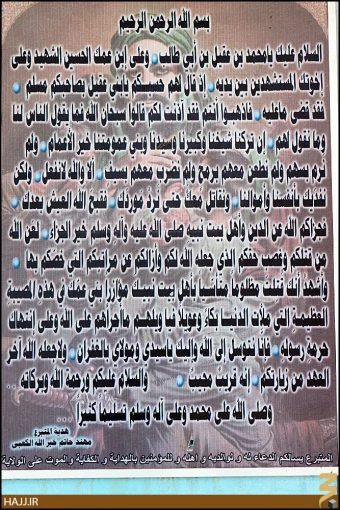 بسم الله الرحمن الرحيم
السلام عليك يا محمد بن عقيل بن أبي طالب وعلى إبن عمك الحسين الشهيد وعلى
إخوتك المستشهدين بين يديه إذ قال لهم حسبكم يابني عقيل بصاحبكم مسلم
فقد كفى ماعليه فاذهبوا أنتم فقد أذنت لكم قالوا سبحان الله فما يقول الناس لنا
وما نقول لهم إن تركنا شيخنا وكبيرنا وسيدنا وبني عمومتنا خير الأعمام ولم
نرم بسهم ولم نطعن معهم برمح ولم نضرب معهم بسيف لا والله لانفعل ولكن
نفديك بأنفسنا وأموالنا ونقاتل معك حتى نرد موردك فقبح الله العيش بعدك
فجزاكم الله عن الدين وأهل بيت نبيه صلى الله عليه وآله وسلم خير الجزاء لعن الله
من قتلكم وغصب حقكم الذي جعله الله لكم وأزالكم عن مراتبكم التي خصكم بها
وأشهد أنك قتلت مظلوما مواسيا لأهل بيت نبيك مؤازرا بني عمك في هذه المصيبة
العظيمة التي ملأت الدنيا بكاء وعويلا فيا ويلهم ماأجرأهم على الله وعلى انتهاك
حرمة رسوله فإنا نتوسل إلى الله وإليك ياسيدي ومولاي بالغفران ولاجعله الله آخر
العهد من زيارتكم إنه قريب مجيب والسلام عليكم ورحمة الله وبركاته
وصلى الله على محمد وعلى آله وسلم تسليما كثيرا
هدية المتبرع
مهند حاتم خير الله الكعبي
المتبرع يسالكم الدعاء له و لوالديه و اهله و للمؤمنين بالهداية و الكفاية و الموت على الولاية
HAJJ.IR